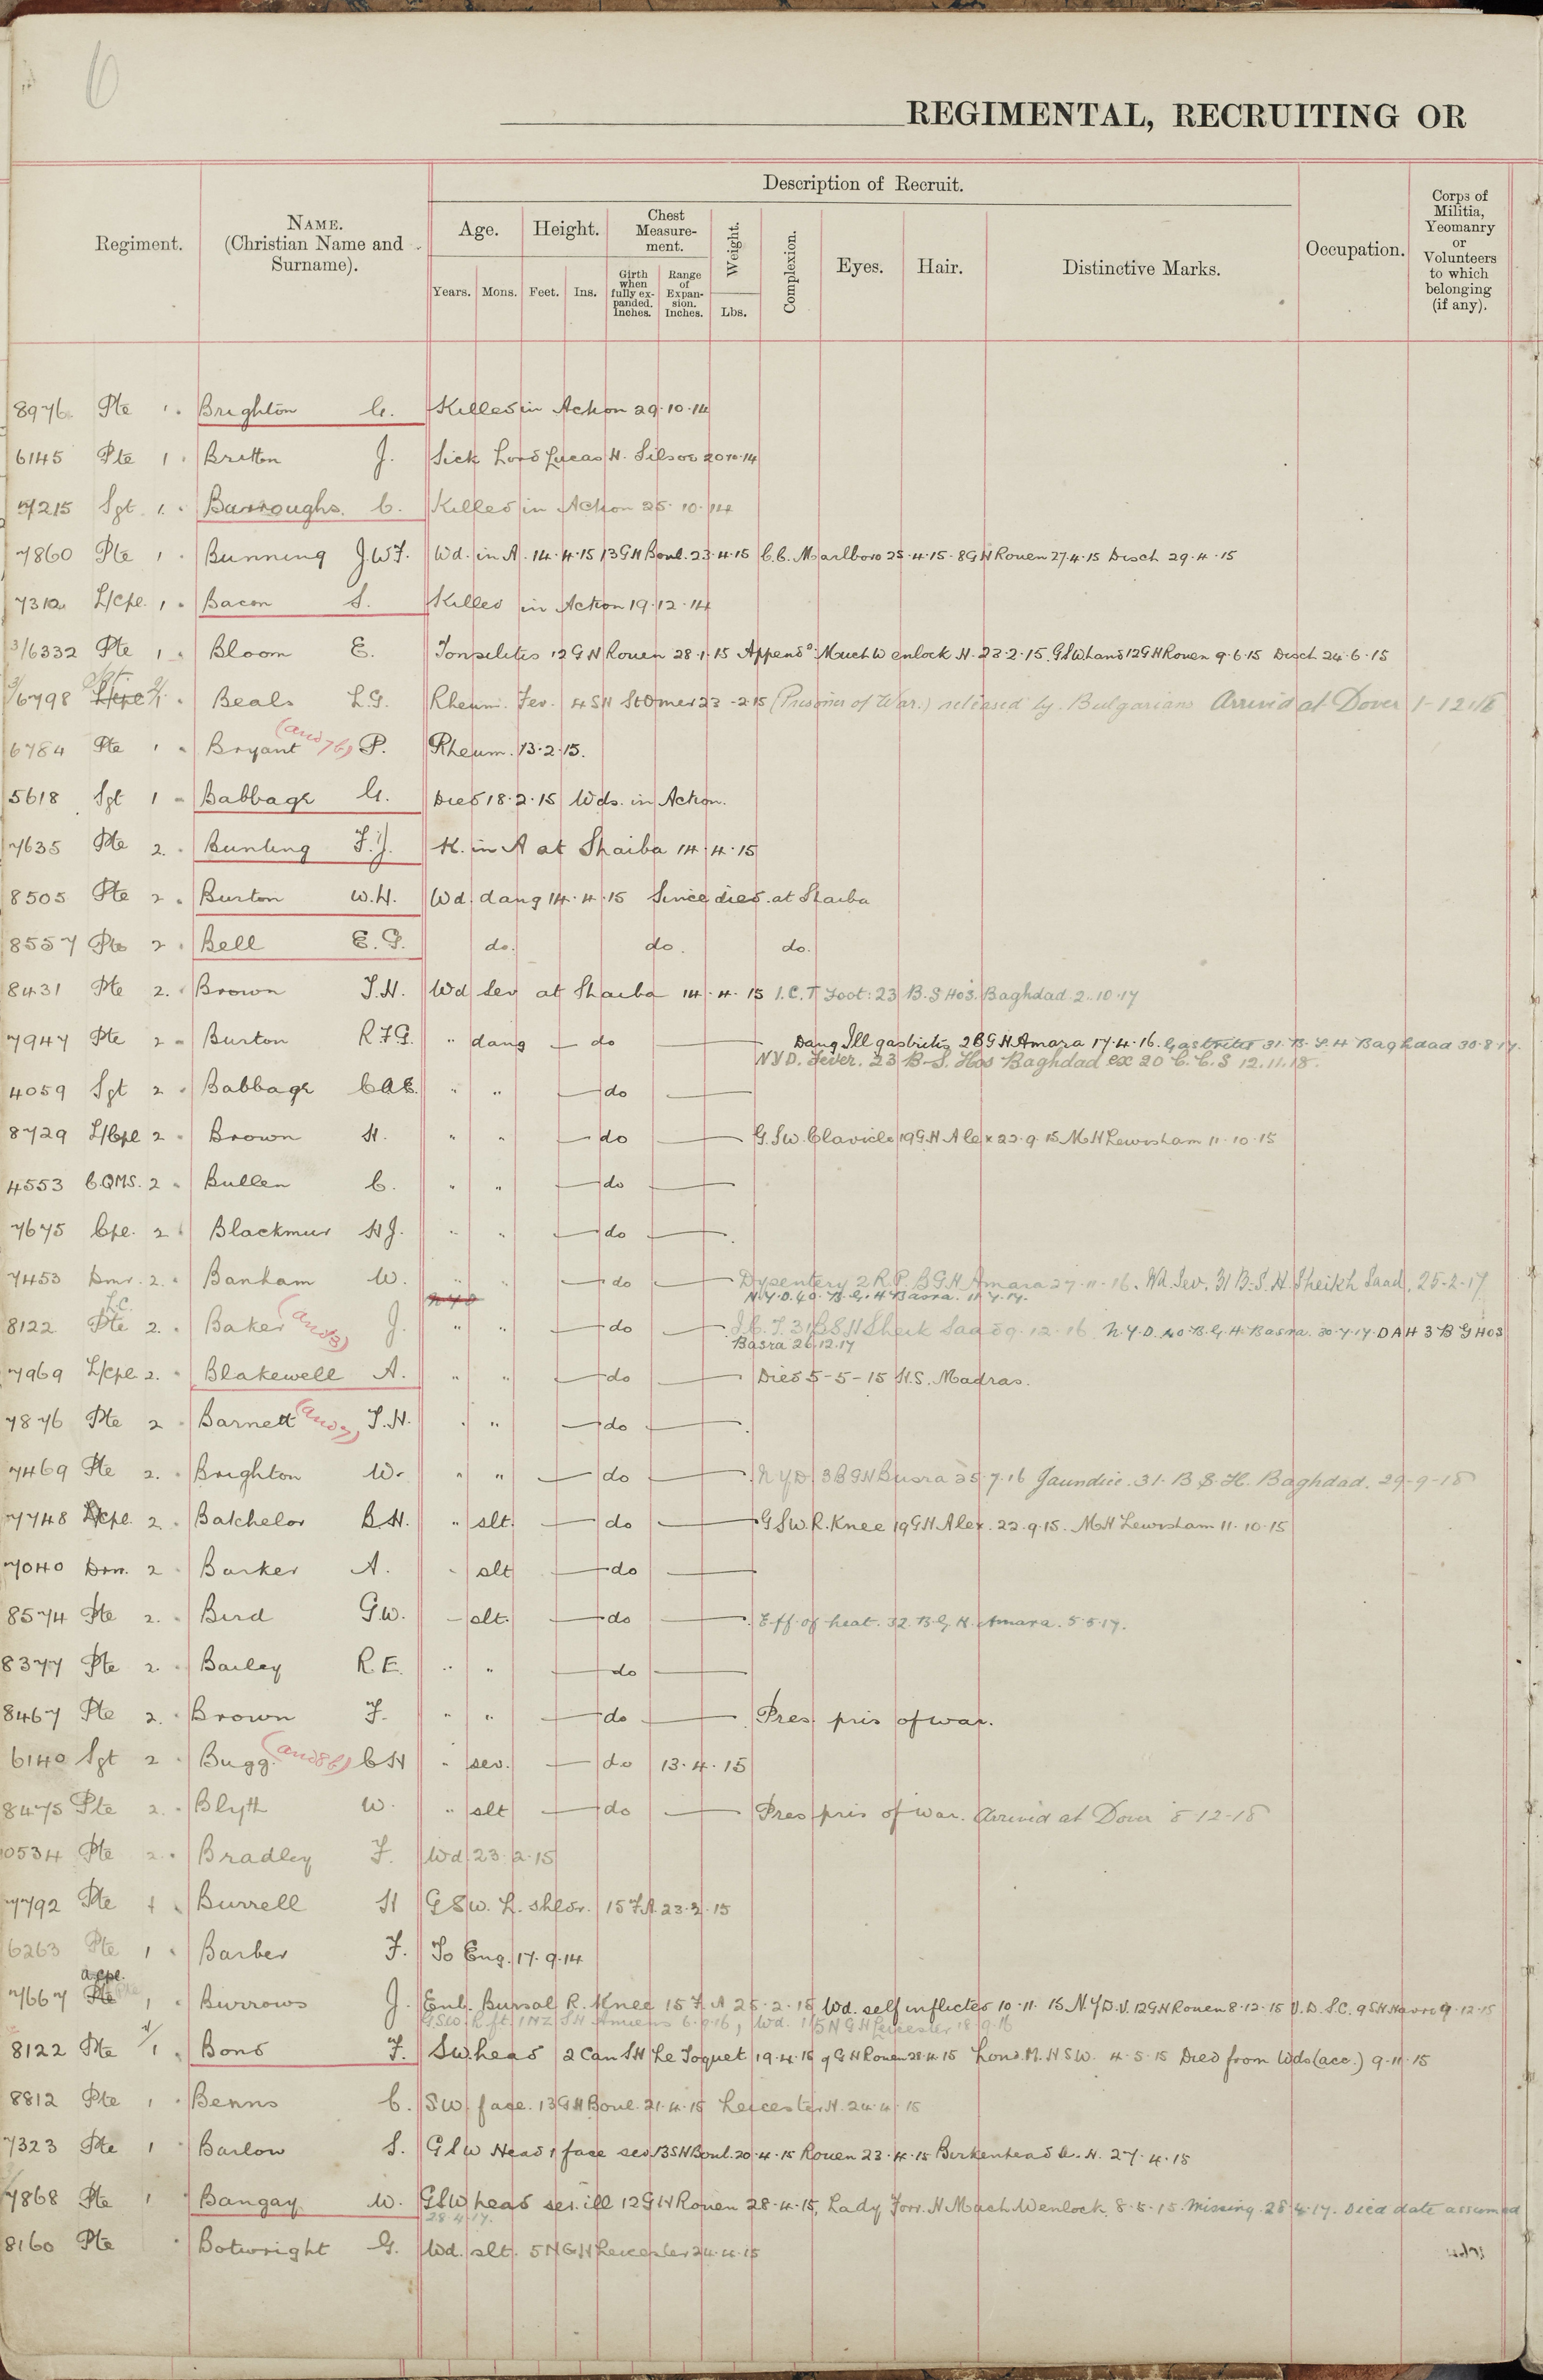 6
REGIMENTAL, RECRUITING OR
Regiment.
NAME.
(Christian Name and
Surname).
Description of Recruit.
Age.
Height.
Chest
Measure-
ment.
Weight.
Complexion.
Eyes.
Hair.
Distinctive Marks.
Occupation.
Corps of
Militia,
Yeomanry
or
Volunteers
to which
belonging
(if any).
Years.
Mons.
Feet.
Ins.
Girth
when
fully ex-
panded.
Inches.
Range
of
Expan-
sion.
Inches.
Lbs.
8976 Pte 1 Brighton G. Killed in Action 29.10.14
6145 Pte 1 Britton J. Sick Lord Lucas H. Silsoe 20.10.14
7215 Sgt 1 Burroughs C. Killed in Action 25.10.14
7860 Pte 1 Bunning J.W.F. Wd. in A. 14.4.15 13 G H Boul. 23.4.15 C.C. Marlboro 25.4.15. 8 G H Rouen 27.4.15 Disch 29.4.15
7312 L/Cpl. 1 Bacon S. Killed in Action 19.12.14
3/6332 Pte 1 Bloom E. Tonsilitis 12 G H Rouen 28.1.15 Append: Much Wenlock H. 23.2.15. GSW hand 12 G H Rouen 9.6.15 Disch 24.6.15
3/6798 L/Cpl Sgt 2/1 Beals L.G. Rheum. Fev. 4 S H St Omer 23-2-15 (Prisoner of War.) released by Bulgarians Arrived at Dover 1-12-18
6784 Pte 1 Bryant (and 76) P. Rheum. 13.2.15.
5618 Sgt 1 Babbage G. Died 18.2.15 Wds. in Action.
7635 Pte 2. Bunting F.J. K. in A at Shaiba 14.4.15
8505 Pte 2 Burton W.H. Wd. dang 14.4.15 Since died at Shaiba
8557 Pte 2 Bell E.G. do. do. do.
8431 Pte 2. Brown T.H. Wd Sev at Shaiba 14.4.15 I.C.T Foot: 23 B.S Hos. Baghdad 2.10.17
7947 Pte 2 Burton R.F.G. " dang — do — Dang Ill gastritis 2 B G H Amara 17.4.16. Gastritis 31. B. S. H Baghdad 30.8.17.
N Y D. Fever. 23 B-S. Hos Baghdad ex 20 C.C.S 12.11.18.
4059 Sgt 2 Babbage C.A.E. " " — do —
8729 L/Cpl 2 Brown H. " " — do — G.S.W. Clavicle 19 G.H Alex 22.9.15 M H Lewisham 11.10.15
4553 C.QMS. 2 Bullen C. " " — do —
7675 Cpl. 2 Blackmur H J. " " — do —
7453 Dmr. 2. Banham W. " " — do — Dysentery 2 R.P. B G H Amara 27-11-16. Wd. Sev. 31 B.S.H. Sheikh Saad. 25-2-17
N.Y.D. 40. B. G. H Basra. 11.7.17.
N Y D
8122 L.C. Pte 2. Baker (and 3) J. " " — do — I.C.T. 31 B S H Sheik Saad 9.12.16. N.Y.D. 40 B. G. H. Basra. 30.7.17. D A H 3 B G Hos
Basra 26.12.17
7969 L/Cpl 2. Blakewell A. " " — do — Died 5-5-15 H.S. Madras.
7876 Pte 2 Barnett (and 7) T.H. " " — do —
7469 Pte 2. Brighton W. " " — do — N Y D 3 B G H Busra 25.7.16 Jaundice. 31. B S. H. Baghdad. 29-9-18
7748 L/Cpl. 2 Batchelor B H. " slt. — do — G S W. R. Knee 19 G H Alex. 22.9.15. M H Lewisham 11.10.15
7040 Drm. 2 Barker A. " slt — do —
8574 Pte 2. Bird G.W. — slt. — do — Eff. of heat. 32. B G H. Amara. 5.5.17.
8377 Pte 2 Bailey R.E. " " — do —
8467 Pte 2. Brown F. " " — do — Pres pris of war.
6140 Sgt 2 Bugg. (and 86) C H " sev. — do 13.4.15
8475 Pte 2. Blyth W. " slt — do — Pres pris of war. Arrived at Dover 8-12-18
10534 Pte 2. Bradley F. Wd 23.2.15
7792 Pte 1 Burrell H G S W. L. shldr. 15 F.A. 23.2.15
6263 Pte 1 Barber F. To Eng. 17.9.14
7667 a/cpl. Pte 1 Burrows J. Enl. Bursal R. Knee 15 F.A 25.2.15 Wd. self inflicted 10.11.15 N.Y.D.V. 12 G H Rouen 8.12.15 V.D.S.C. 9 S H Havre 9.12.15
GSW. R. ft. 1 NZ S H Amiens 6.9.16, Wd. 1/5 N G H Leicester 18.9.16
8122 Pte 1 Bond F. SW. head 2 Can S H Le Toquet 19.4.15 9 G H Rouen 28.4.15 Lond. M. H SW. 4.5.15 Died from Wds (acc.) 9.11.15
8812 Pte 1 Benns C. SW. face. 13 G H Boul. 21.4.15 Leicester H. 24.4.15
7323 Pte 1 Barlow S. G S W Head & face sev. 13 S H Boul. 20.4.15 Rouen 23.4.15 Birkenhead B. H. 27.4.15
7868 Pte 1 Bangay W. GSW head ser. ill 12 G H Rouen 28.4.15, Lady Forr. H Much Wenlock. 8.5.15. Missing. 28.4.17. Died date assumed
28.4.17.
8160 Pte Botwright G. Wd. slt. 5 N G H Leicester 24.4.15